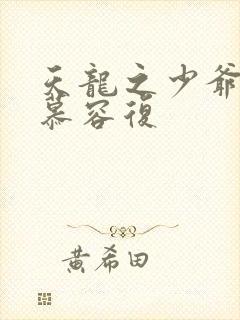 天龍之少爺
慕容復
黄希田